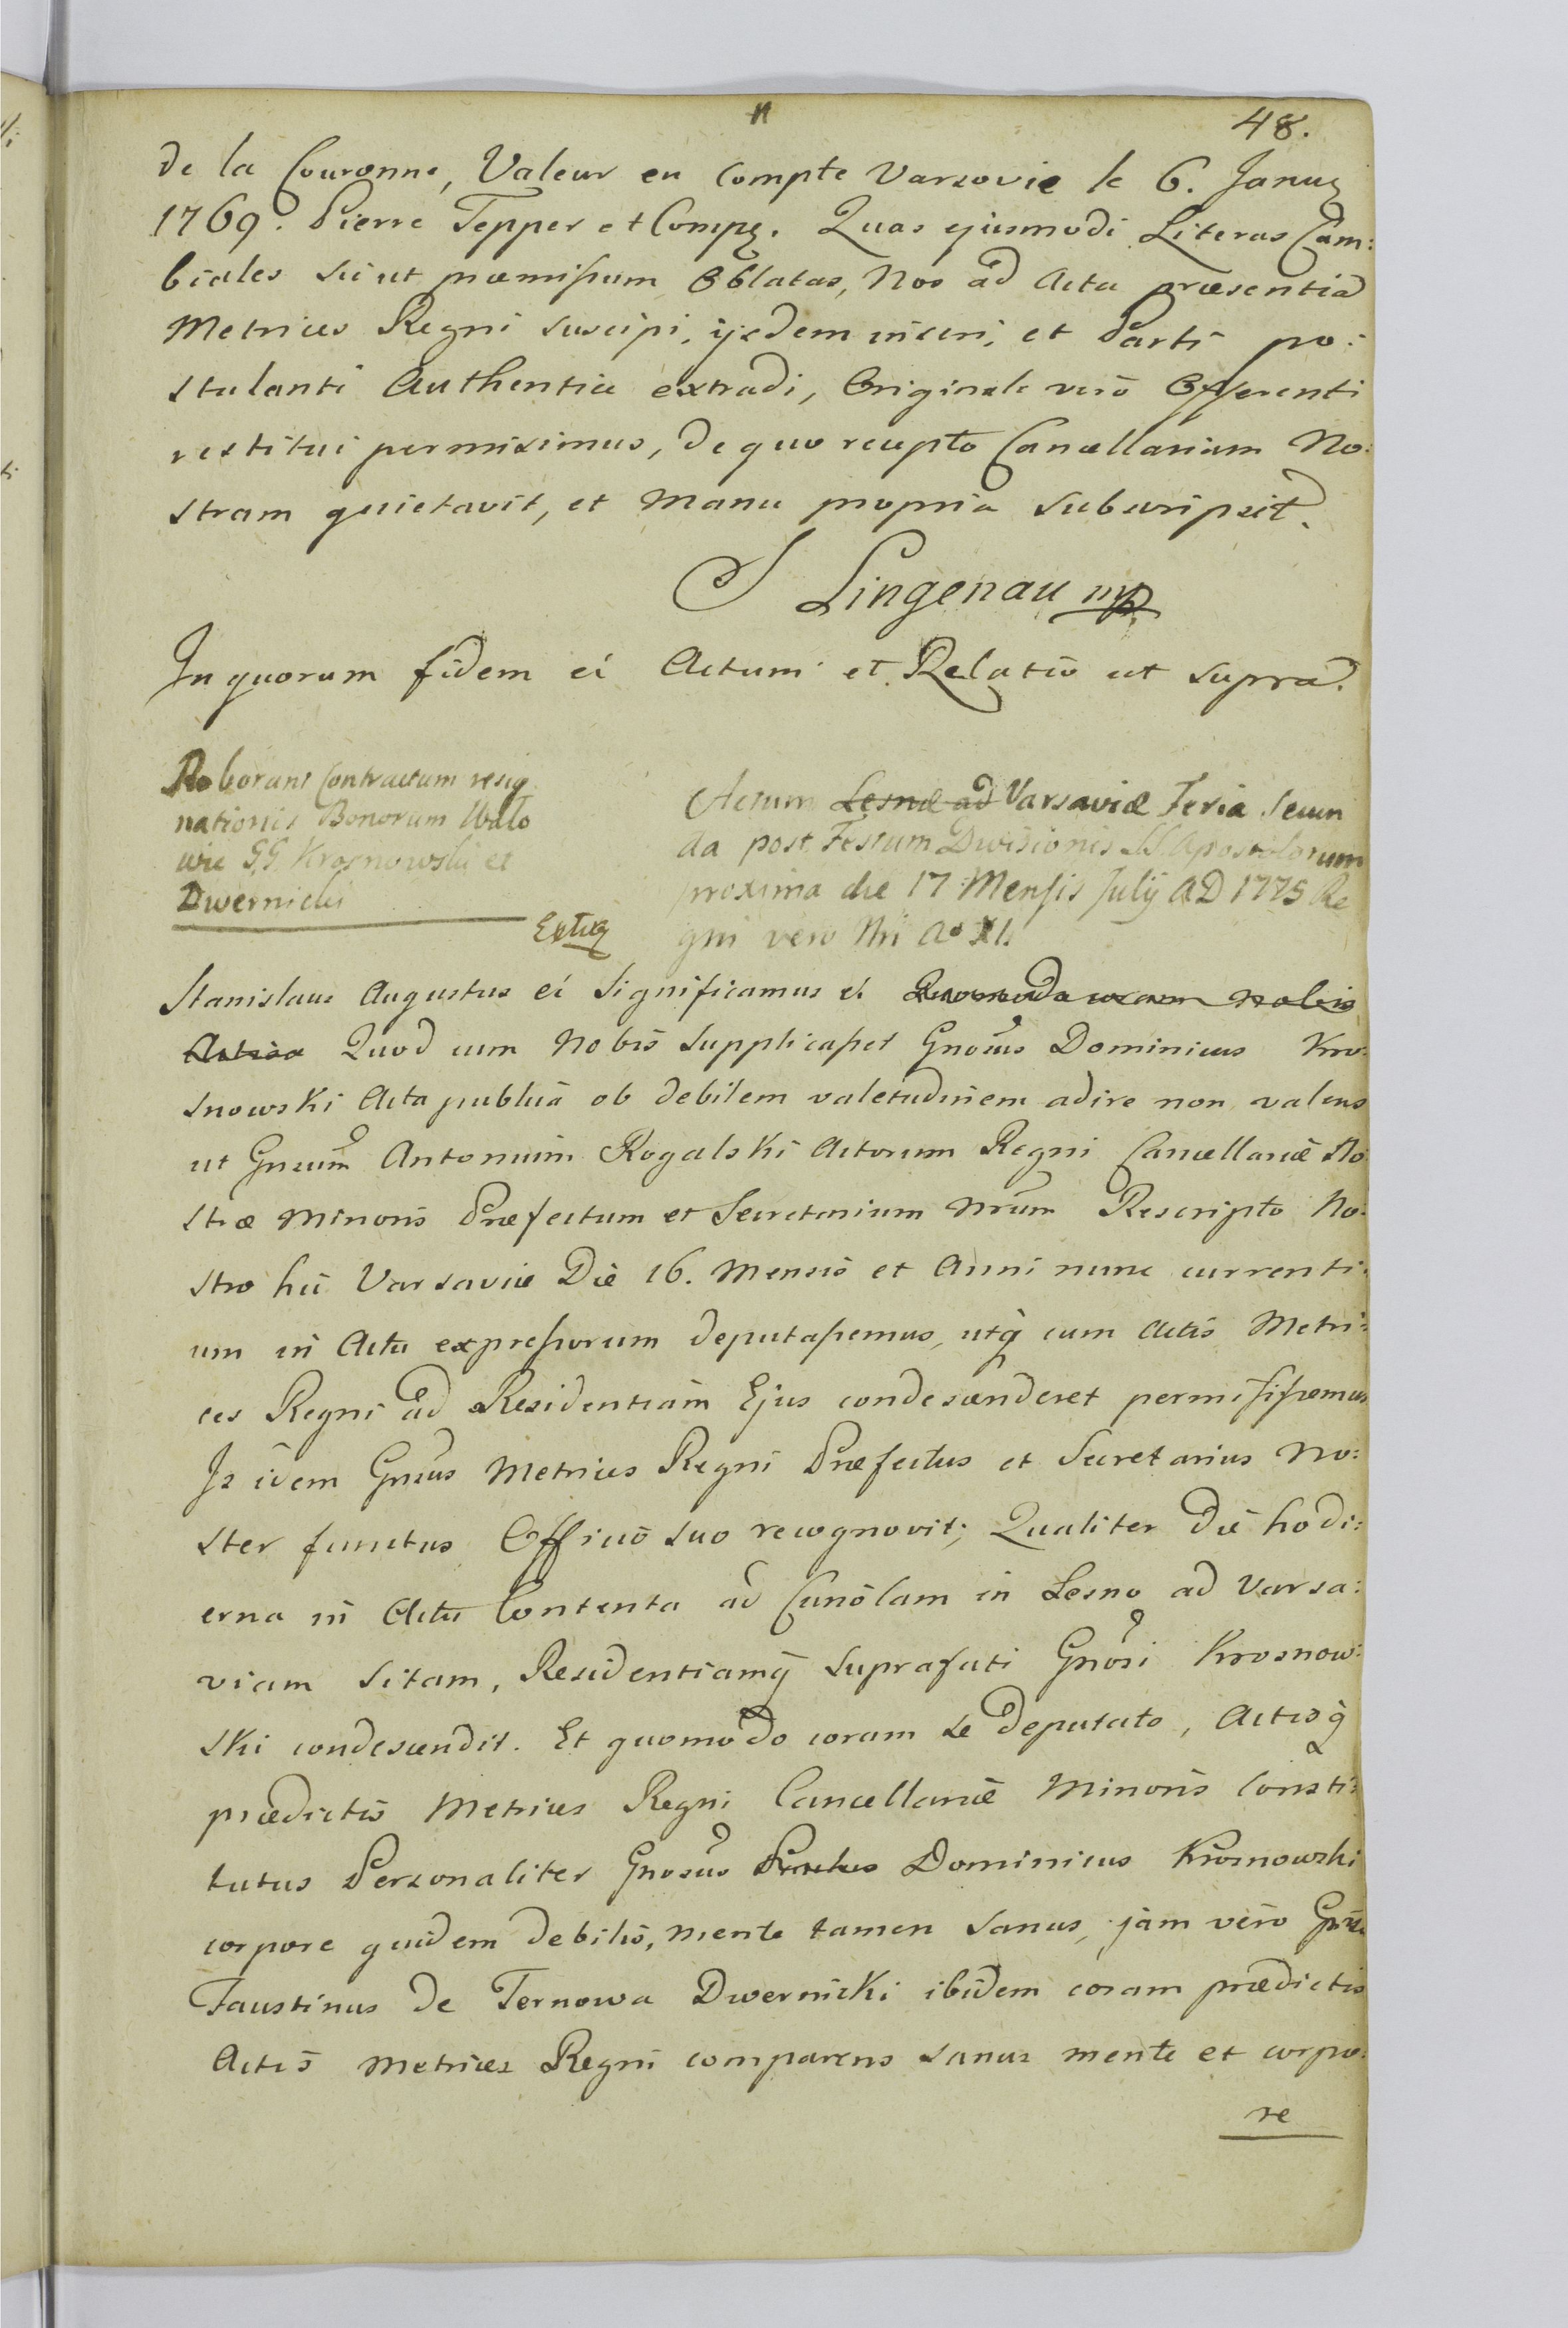 48.
de la Couronne, Valeur en compte Varsovie le 6. Janu
1769. Pierre Tepper et Comp. Quas ejusmodi Literas Cam:
biales sicut præmissum Oblatas, Nos ad Acta præsentia
Metrices Regni suscipi, ijsdem inseri, et Parti po:
stulanti Authentice extradi, Originale verò Offerenti
restitui permisimus, de quo recepto Cancellariam No:
stram quietavit, et Manu propria subscripsit.
J Lingenau mp
In quorum fidem ei Actum et Relatio ut supra.
Roborant Contractum resig
nationis Bonorum
wie GG Krosnowski et
Dwernicki
Actum Lesnæ ad Varsaviæ Feria Secun
da post Festum Divisionis SS. Apostolorum
proxima die 17 Mensis Julij AD 1775 Re
gni vero Nri Ao XI
Stanislaus Augustus ei Significamus ei Quomodo coram Nobis
Actisq Quod cum Nobis supplicasset Gnosus Dominicus Kro:
snowski Acta publica ob debilem valetudinem adire non valens
ut Gnsum Antonium Rogalski Actorum Regni Cancellariæ No
stræ Minoris Præfectum et Secretarium Nrum Rescripto No:
stro hic Varsaviæ Die 16. Mensis et Anni nunc currenti:
um in Actu expressorum deputassemus, utq cum Actis Metri:
ces Regni ad Residentiam Ejus condescenderet permisissemus
Is idem Gnsus Metrices Regni Præfectus et Secretarius No:
ster functus Officio suo recognovit; Qualiter Die hodi:
erna in Actu Contenta ad Curiolam in Lesno ad Varsa:
viam sitam, Residentiamq suprafati Gnosi Krosnow:
ski condescendit. Et quomodo coram se Deputato, Actisq
prædictis Metrices Regni Cancellariæ Minoris Consti:
tutus Personaliter Gnosus Dominicus Krosnowski
corpore quidem debilis, mente tamen sanus, jam verò
Faustinus de Ternowa Dwernicki ibidem coram prædictis
Actis Metrices Regni comparens sanus mente et corpo:
re